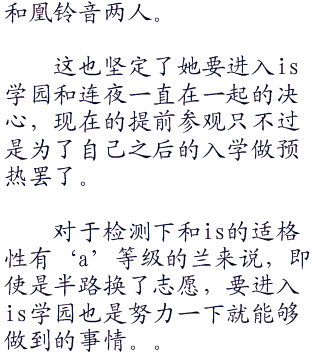 和凰铃音两人。
这也坚定了她要进入is
学园和连夜一直在一起的决
心，现在的提前参观只不过
是为了自己之后的入学做预
热罢了。
对于检测下和is的适格
性有‘a’等级的兰来说，即
使是半路换了志愿，要进入
is学园也是努力一下就能够
做到的事情。。